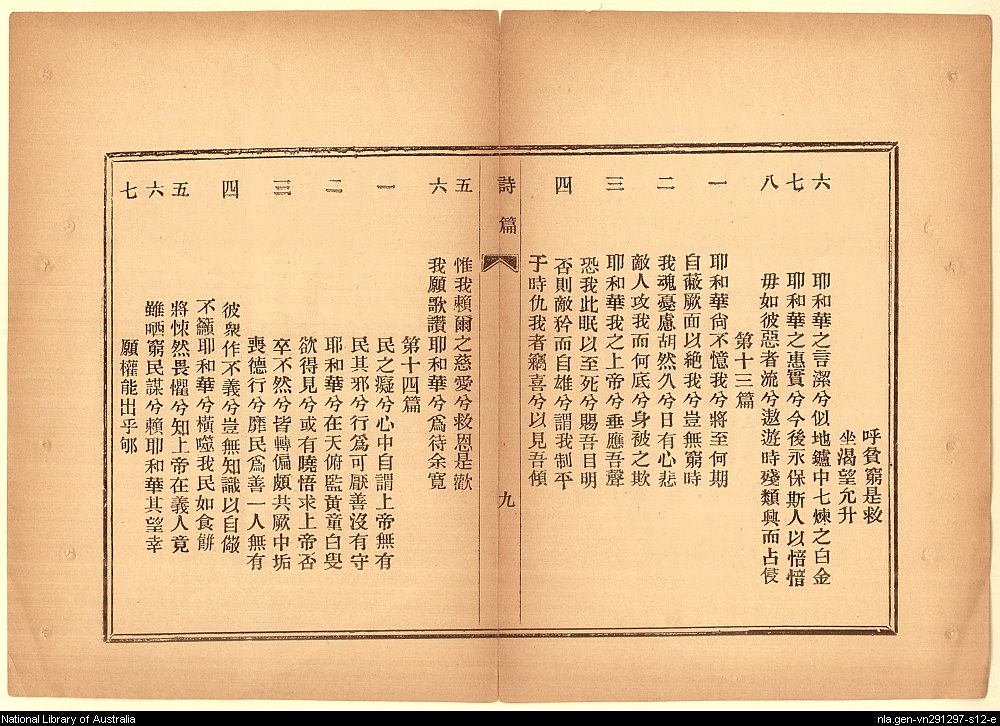 呼貧窮是救
坐渴望允升
六 耶和華之言潔兮似地鑪中七煉之白金
七 耶和華之惠實兮今後永保斯人以愔愔
八 毋如彼惡者流兮遨遊時殘類興而占侵
第十三篇
一 耶和華尙不憶我兮將至何期
自蔽厥面以絕我兮豈無窮時
二 我魂憂慮胡然久兮日有心悲
敵人攻我而何底兮身被之欺
三 耶和華我之上帝兮垂應吾聲
恐我此眠以至死兮賜吾目明
四 否則敵矜而自雄兮謂我制平
于時仇我者竊喜兮以見吾傾
詩篇 九
五 惟我賴爾之慈愛兮救恩是歡
六 我願歌讚耶和華兮爲待余寬
第十四篇
一 民之癡兮心中自謂上帝無有
民其邪兮行爲可厭善沒有守
二 耶和華兮在天俯監黃童白叟
欲得見兮或有曉悟求上帝否
三 卒不然兮皆轉偏頗共厥中垢
喪德行兮靡民爲善一人無有
四 彼衆作不義兮豈無知識以自儆
不籲耶和華兮橫噬我民如食餠
五 將悚然畏懼兮知上帝在義人竟
六 雖哂窮民謀兮賴耶和華其望幸
七 願權能出乎郇
National Library of Australia
nla.gen-vn291297-s12-e